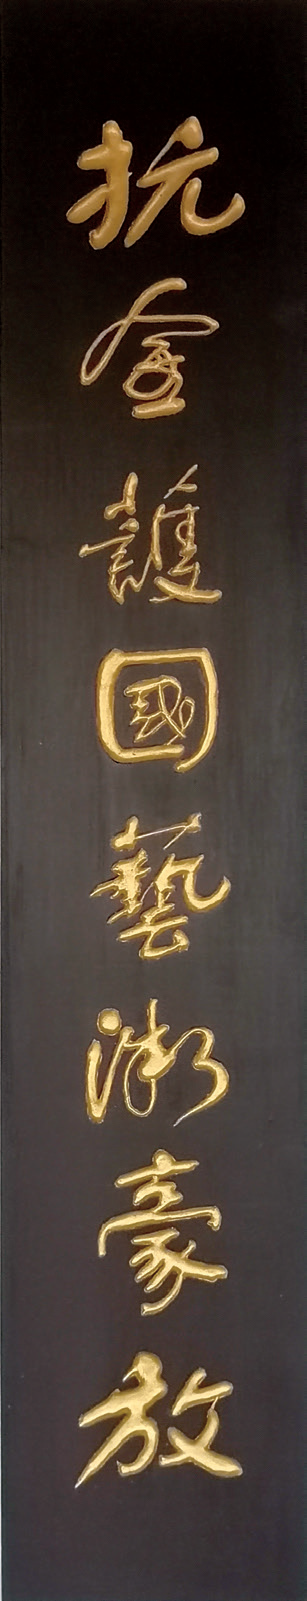 抗金護國藝術豪放